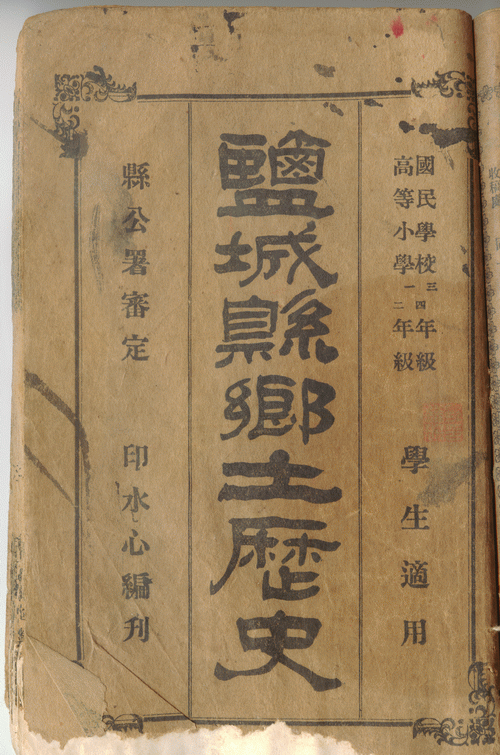 國民學校三四年級
高等小學一二年級
學生適用
鹽城縣鄉土歷史
縣公署審定
印水心編刊